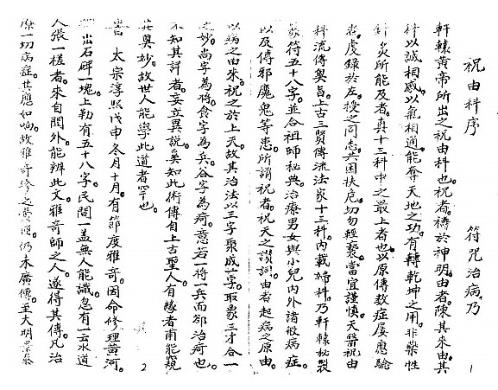 祝由科序　符咒治病。乃
軒轅黃帝所出之祝由科也。祝者。禱於神明。由者。陳其來由。其
科以誠相感。以氣相通。能奪天地之功。有轉乾坤之用。非藥性
針灸所能及者。真十三科中之最上者也。以原傳數症屢應驗
者。虔錄於左。授之同志。共國扶危。切勿輕褻。當宜謹慎。天醫祝由
科流傳奧旨。上古三賢傳流法家十三科內載婦科。乃軒轅秘製
符五十八字。並合祖師秘典。治療男女與小兒內外諸般病症。
以及傳邪魔鬼等患。所謂祝者。祝天之讚詞。由者起病之原由。
以病之由來。祝之於上天。故其治法以三字聚成一字。取象三才合一
之妙。尚字為將。食字為兵。各字為病。意若一將一兵而卻治病也。
不知其詳者。妄立異說。奚知此術傳自上古聖人。有緣者甫能窺
其奧妙。故世人能學此道者罕也。
太宗淳熙戊申冬月十月。有節度雅奇。因命修理黃河。
出石碑一塊。上勒有五十八字。民間一盖無人能識。忽有一云水道
人張一槎者。來自關外。能辨此文。雅奇師之人。遂得其傳。凡治
療一切病症。其應如响。故雅奇珍之仍未廣傳。至大明景泰
1
2